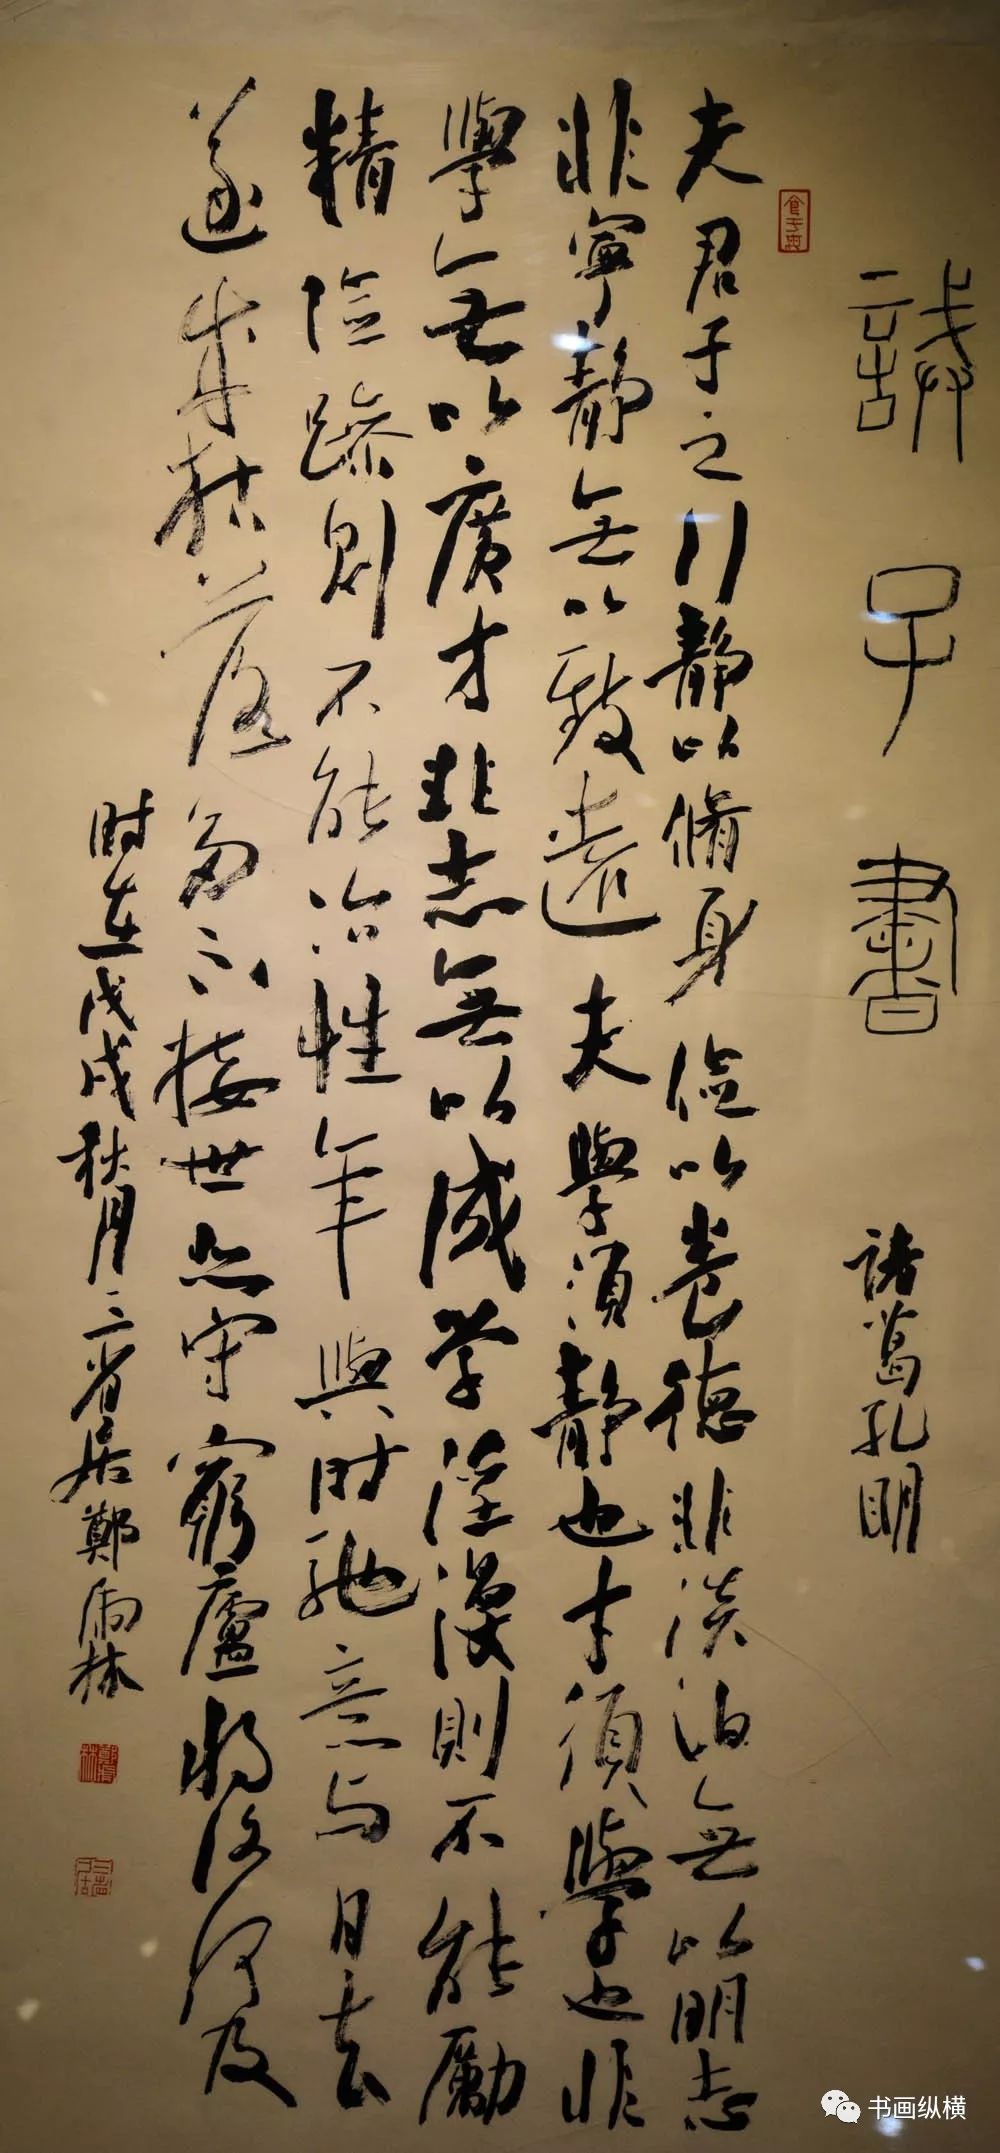 誡子書 諸葛孔明
夫君子之行静以脩身儉以養德非淡泊無以明志
非寧静無以致遠夫學須静也才須學也非
學無以廣才非志無以成学淫漫則不能勵
精險躁則不能冶性年與时馳意与日去
遂成枯落多不接世悲守窮廬將復何及
时在戊戌秋月三省居鄭雨林
书画纵横